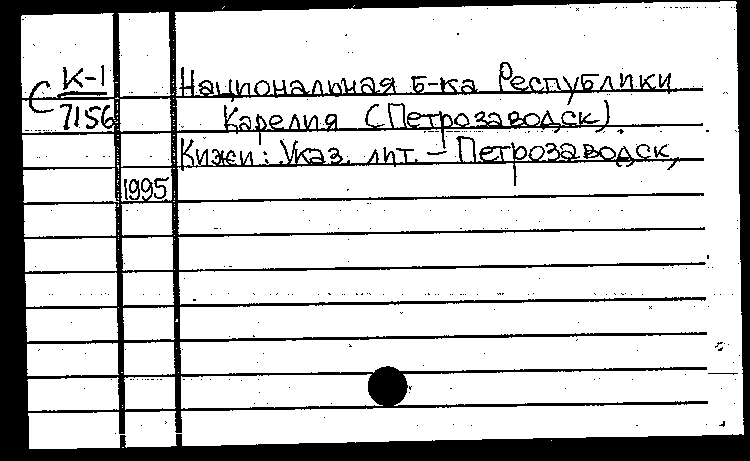 С К-1
7156
Национальная б-ка Республики
Карелия (Петрозаводск).
Кижи: Указ. лит. – Петрозаводск,
1995